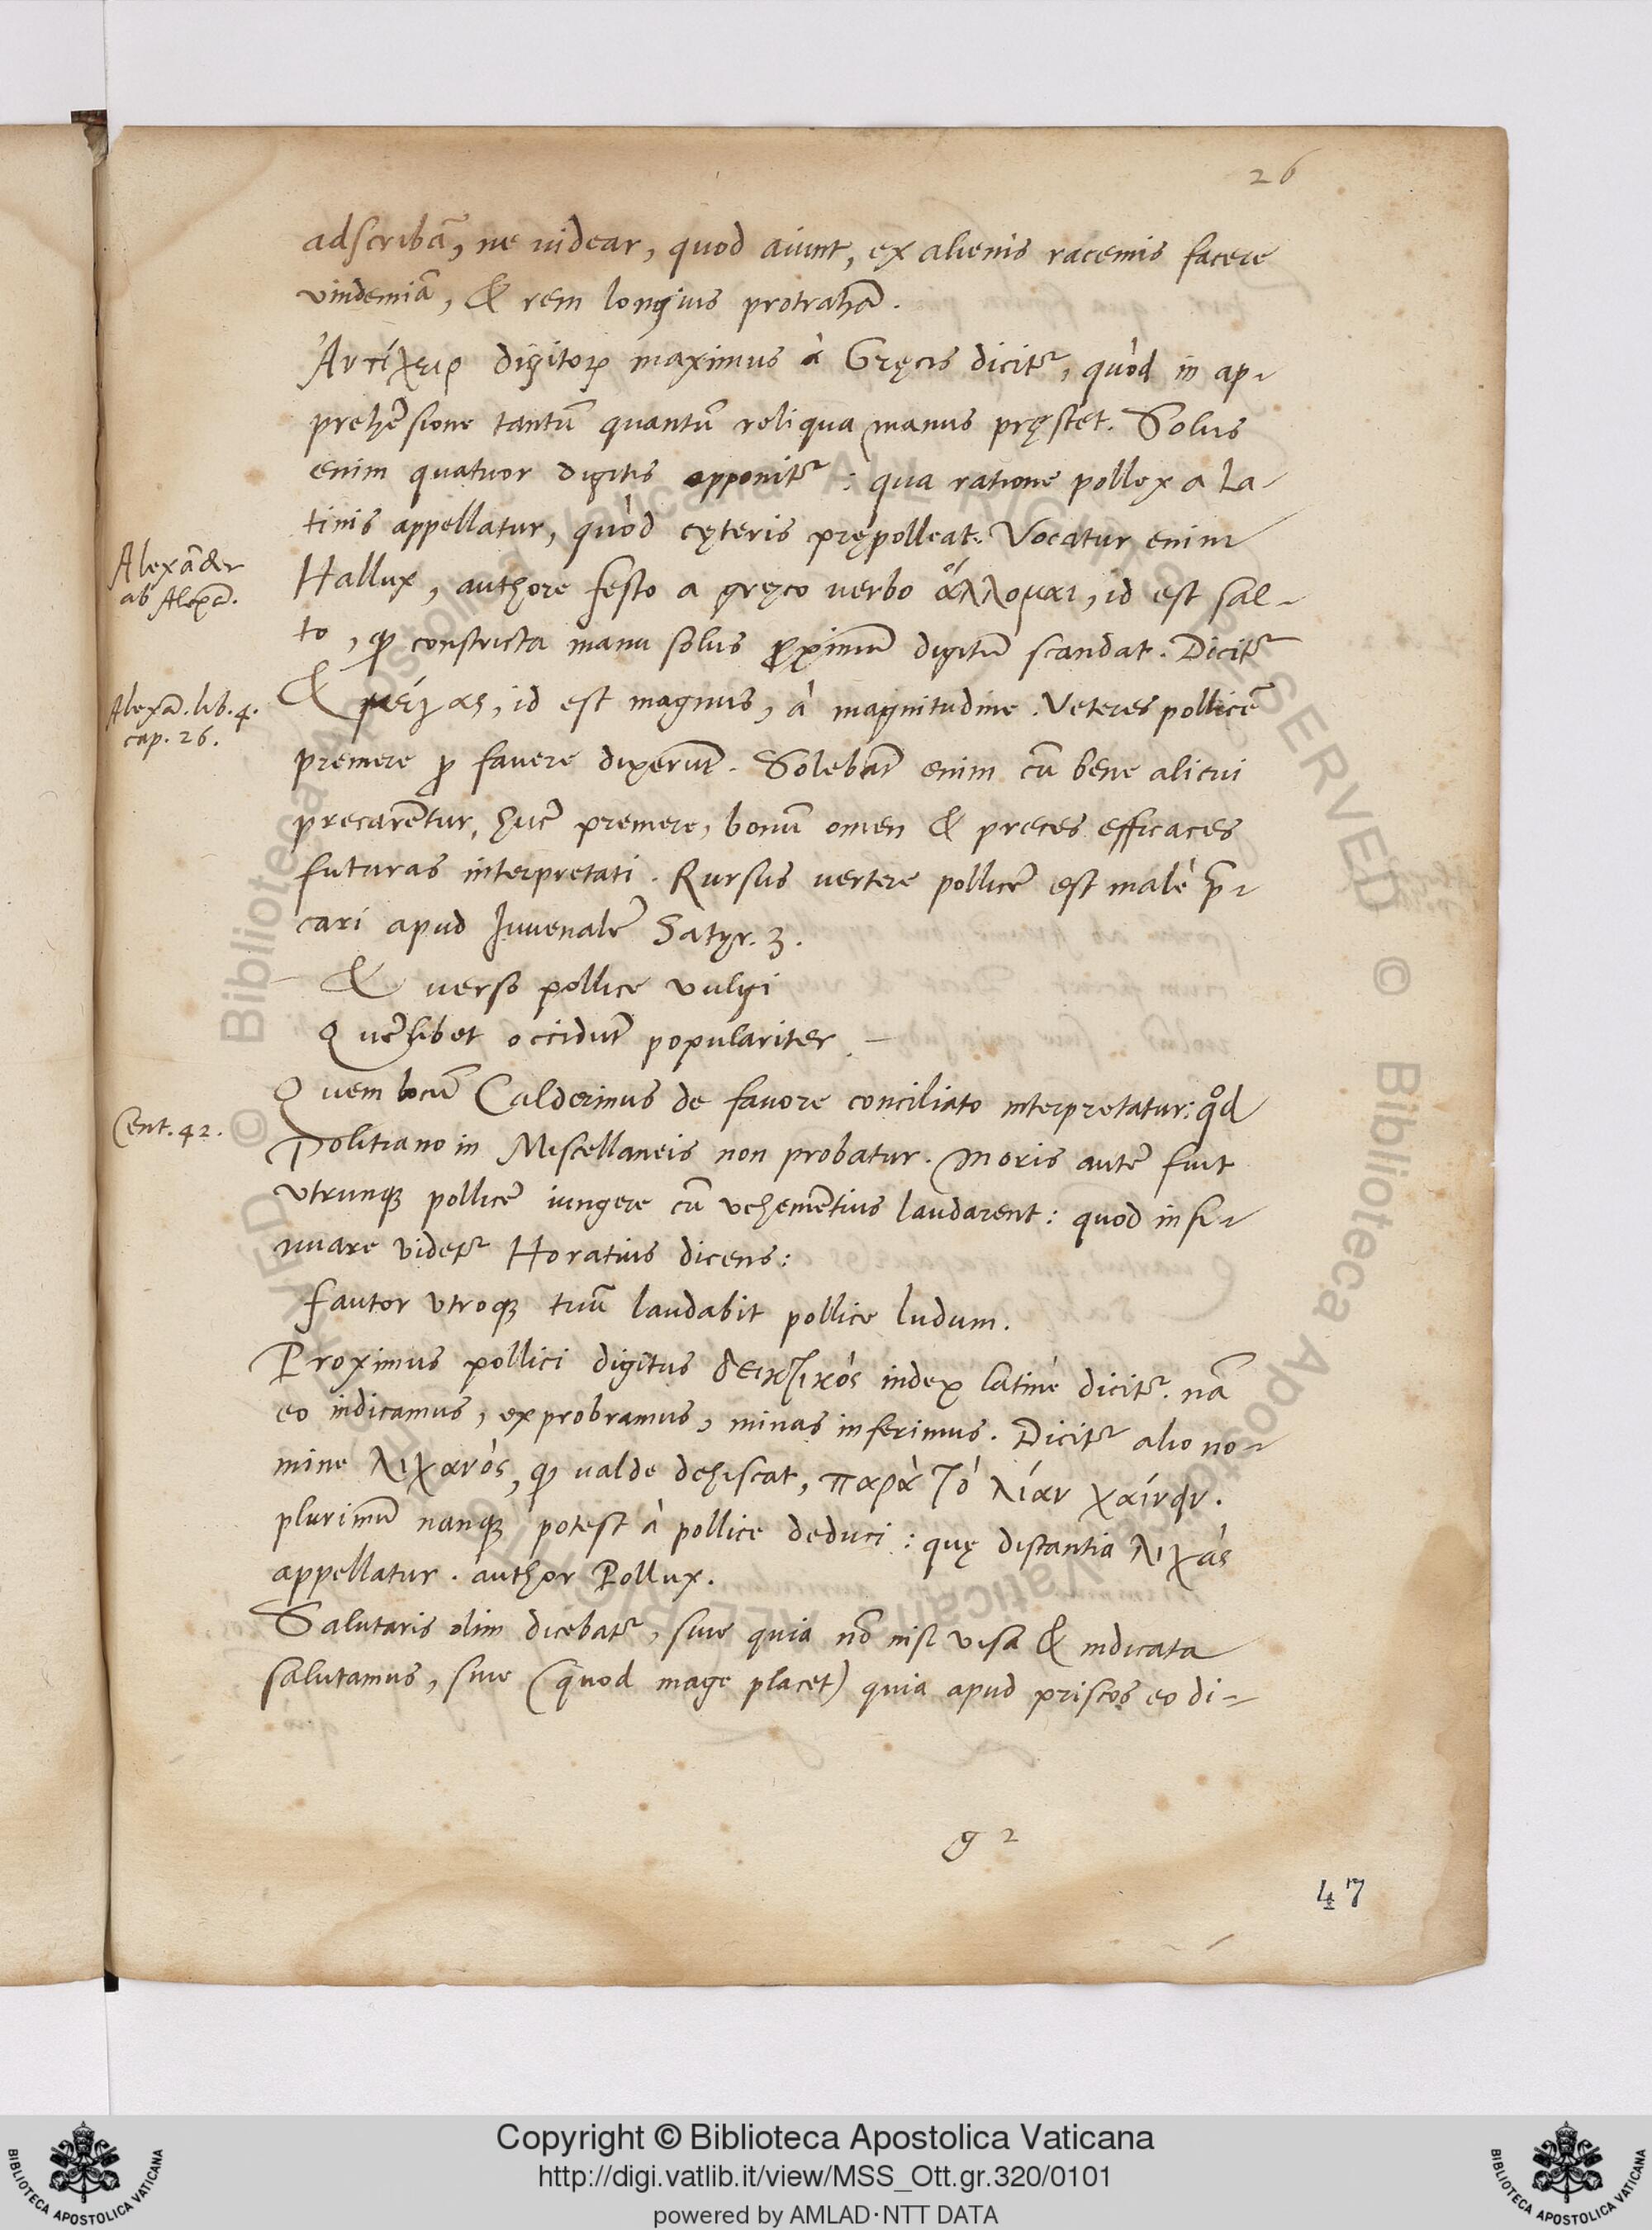 26
adscribā, ne videar, quod aiunt, ex alienis racemis facere
vindemiā, & rem longius protrahā.
Ἀντίχειρ digitoꝝ maximus à Gręcis dicitᷣ, quòd in ap-
prehēsione tantū quantū reliqua manus pręstet. Solus
enim quatuor digitis opponitᷣ : qua ratione pollex a La-
tinis appellatur, quòd cęteris prępolleat. Vocatur enim
Alexāder
ab Alexā.
Hallux, authore festo a gręco verbo ἅλλομαι, id est sal-
to, ꝙ constricta manu solus ꝓximū digitū scandat. Dicitᷣ
Alexā. lib. 4.
cap. 26.
& μέγας, id est magnus, à magnitudine. Veteres pollicē
premere ꝓ favere dixerūt. Solebāt enim cū bene alicui
precarētur, hūc premere, bonū omen & preces efficaces
futuras interpretati. Rursus vertere pollicē est malè p̄-
cari apud Iuvenalē Satyr. 3.
& verso pollice vulgi
Quēlibet occidūt populariter.
Quem locū Calderinus de favore conciliato interpretatur: qd
Cent. 42.
Politiano in Miscellaneis non probatur. Moris autē fuit
vtrunqꝫ pollicē iungere cū vehemētius laudarent: quod insi-
nuare videtᷣ Horatius dicens:
fautor vtroqꝫ tuū laudabit pollice ludum.
Proximus pollici digitus δεικτικὸς index latinè dicitᷣ. nā
eo indicamus, exprobramus, minas inferimus. Dicitᷣ alio no-
mine λιχανὸς, ꝙ valde dehiscat, παρὰ τὸ λίαν χαίνειν.
plurimū nanqꝫ potest à pollice deduci: quę distantia λιχὰς
appellatur. author Pollux.
Salutaris olim dicebatᷣ, sive quia nō nisi visa & indicata
salutamus, sive (quod mage placet) quia apud priscos eo di-
g 2
47
© Biblioteca Apostolica Vaticana ALL RIGHTS RESERVED
Copyright © Biblioteca Apostolica Vaticana
http://digi.vatlib.it/view/MSS_Ott.gr.320/0101
powered by AMLAD·NTT DATA
BIBLIOTECA APOSTOLICA VATICANA
BIBLIOTECA APOSTOLICA VATICANA